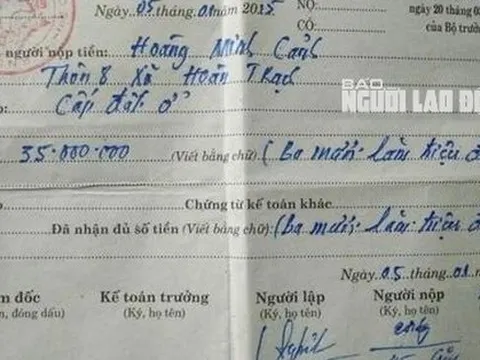 Ngày 05 tháng 01 năm 2015
NỢ
CÓ
ngày 20 tháng 03
của Bộ trưở
người nộp tiền: Hoàng Minh Cảnh
Thôn 8 Xã Hoàn Trạch
Cấp đất ở
BÁO
NGƯỜI LAO Đ
35.000.000 (Viết bằng chữ) (Ba mươi lăm triệu đ
Chứng từ kế toán khác
Đã nhận đủ số tiền (Viết bằng chữ): (Ba mươi lăm triệu đ
Ngày 05 tháng 01
m đốc Kế toán trưởng Người lập Người nộp
n, đóng dấu) (Ký, họ tên) (Ký, họ tên) (Ký, họ tên)